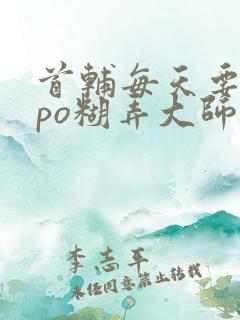 首辅每天要
po糊弄大师
李志平
未经同意禁止转载